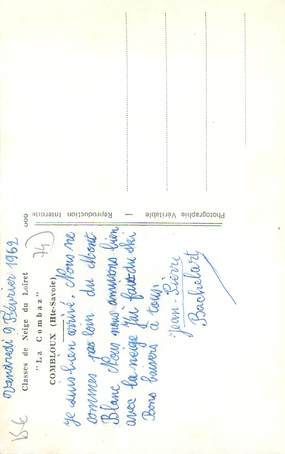 Vendredi 9 Février 1962
Classes de Neige du Loiret
"La Combaz"
COMBLOUX (Hte-Savoie)
74)
Je suis bien arrivé. Nous ne
sommes pas loin du Mont
Blanc. Nous nous amusons bien
avec la neige. J'ai fait du ski
Bons baisers à tous.
Jean-Pierre
Bachelart
Photographie Véritable — Reproduction Interdite